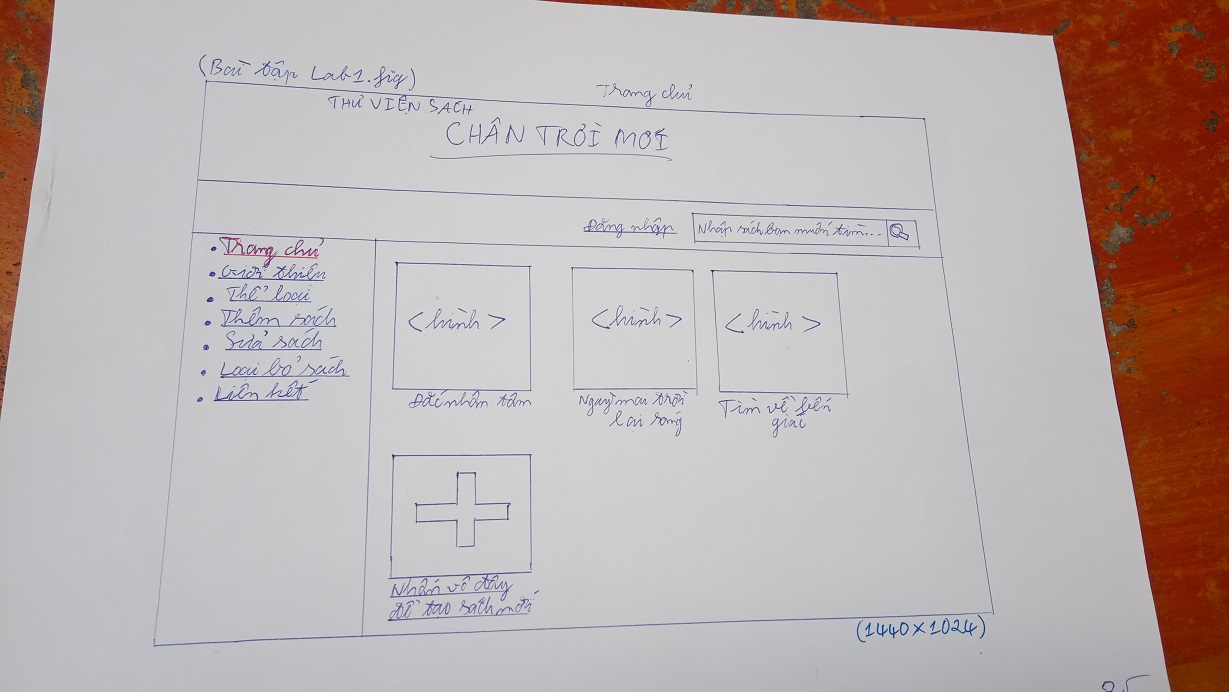 (Bài tập Lab1.fig)
Trang chủ
THƯ VIỆN SÁCH
CHÂN TRỜI MỚI
Đăng nhập
Nhập sách bạn muốn tìm...
• Trang chủ
• Giới thiệu
• Thể loại
• Thêm sách
• Sửa sách
• Loại bỏ sách
• Liên kết
<hình>
<hình>
<hình>
Đắc nhân tâm
Ngày mai trời
lại sáng
Tìm về bến
giác
Nhấn vô đây
để tạo sách mới
(1440×1024)